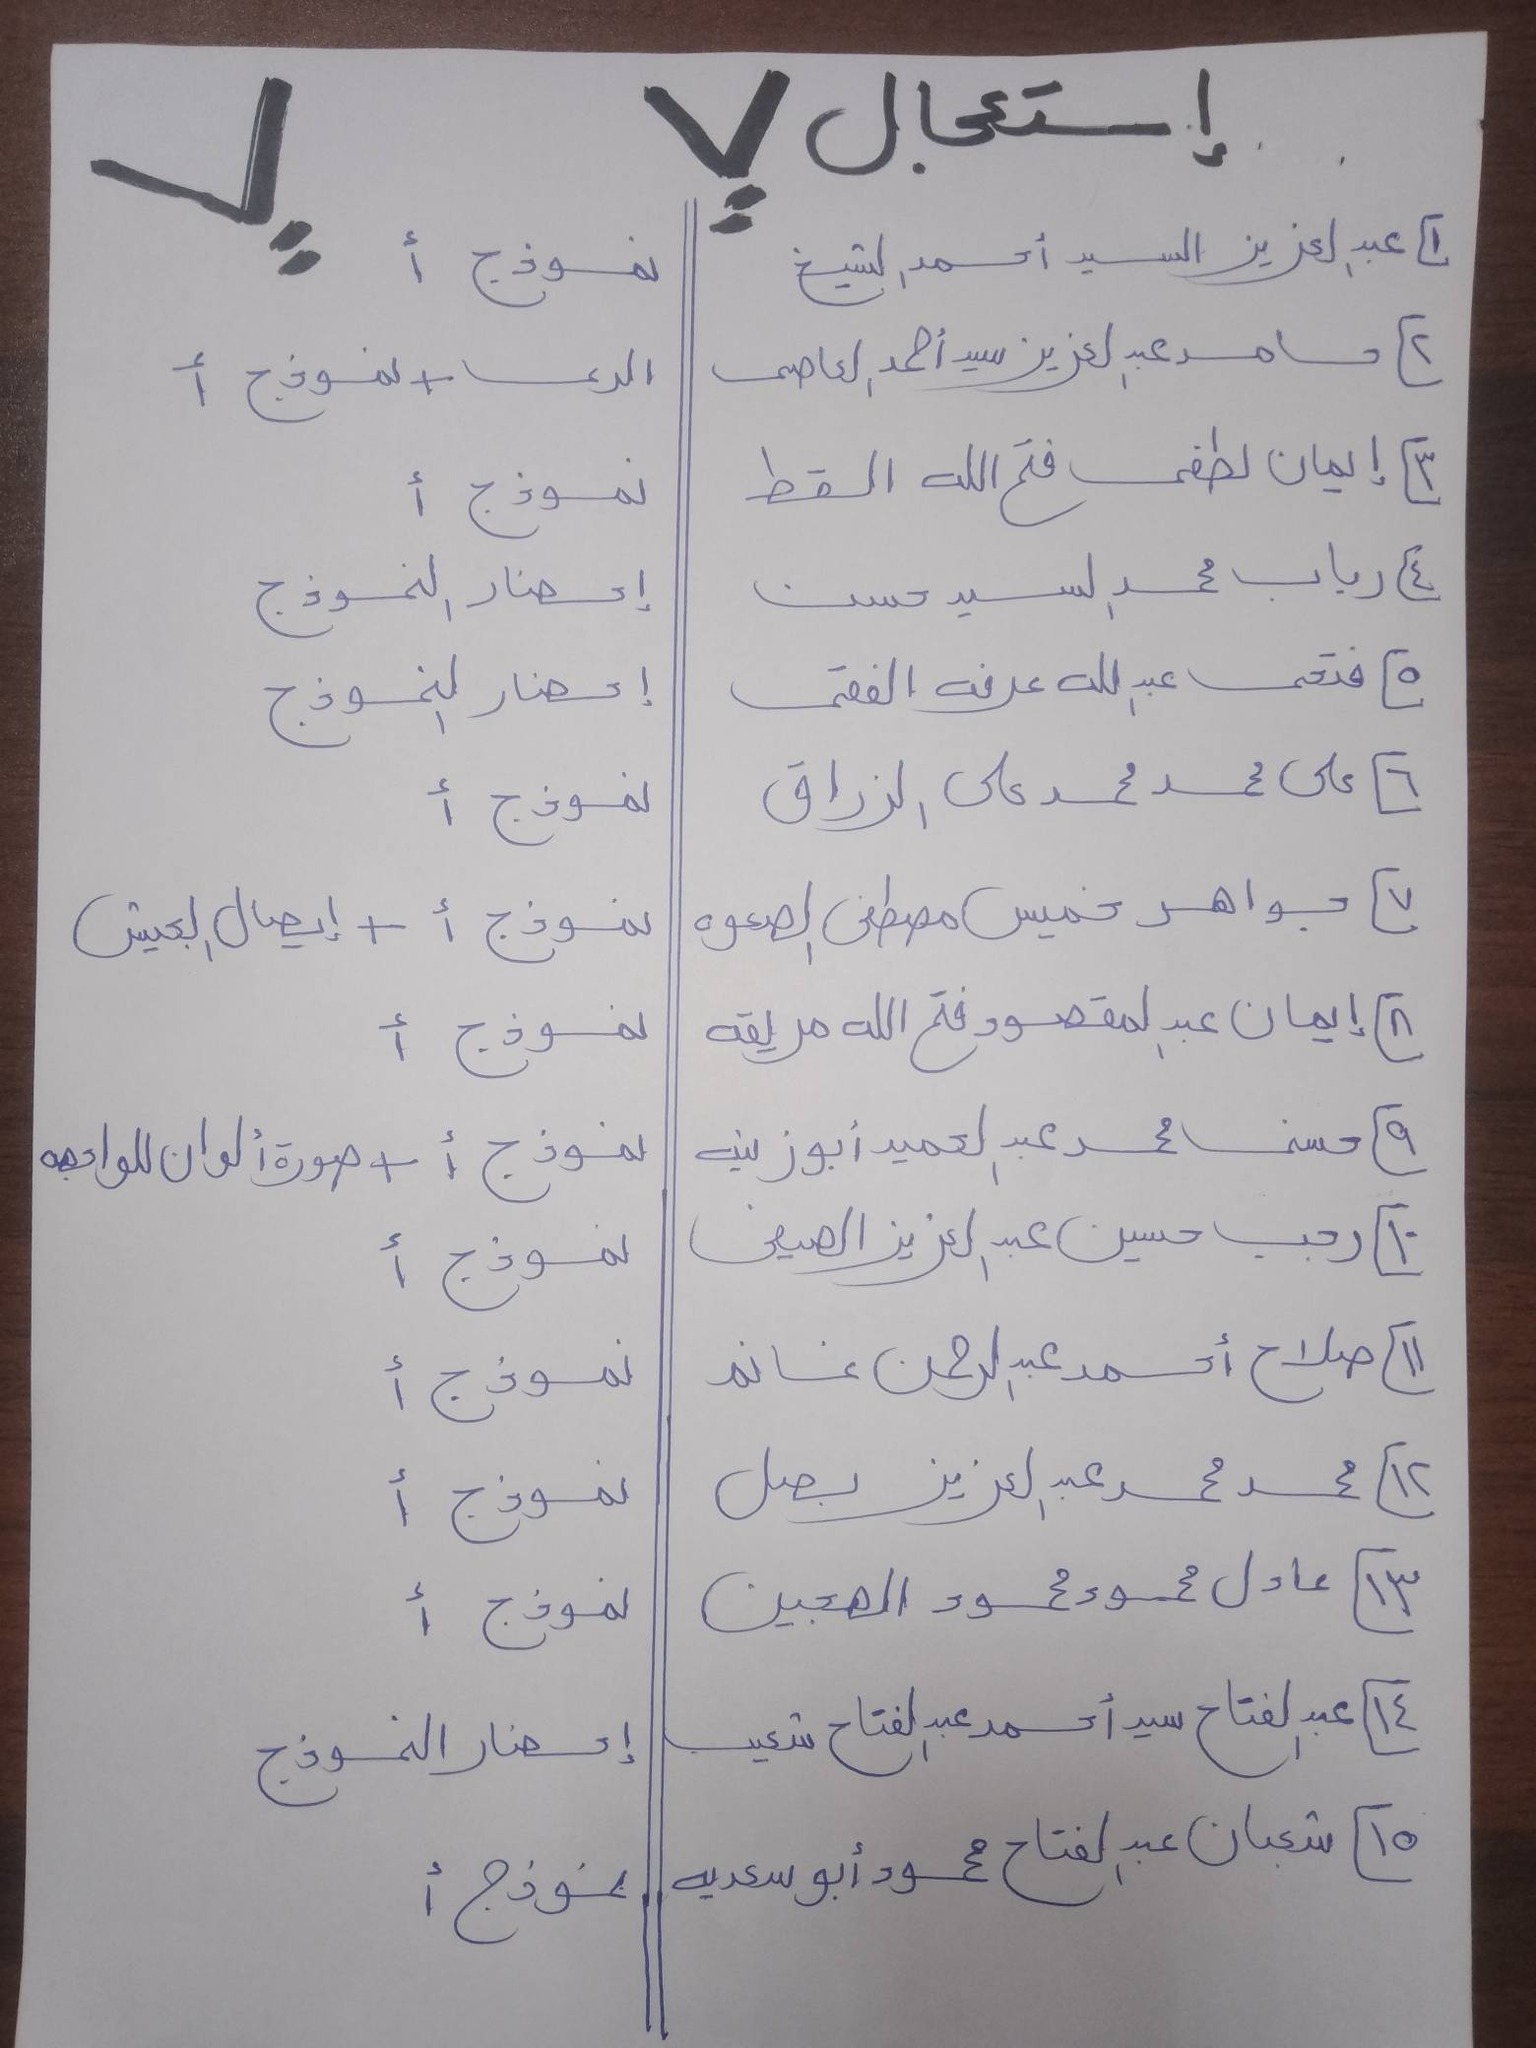 إستعجال
١] عبد العزيز السيد أحمد الشيخ نموذج أ
٢] حامد عبد العزيز سيد أحمد العاصى + نموذج أ
٣] إيمان لطفى فتح الله القط نموذج أ
٤] رباب محمد السيد حسن إحضار النموذج
٥] فتحى عبد الله عرفه الفقى إحضار النموذج
٦] على محمد محمد على الزراق نموذج أ
٧] جواهر خميس مصطفى الصعوه نموذج أ + إيصال العيش
٨] إيمان عبد المقصود فتح الله مريقه نموذج أ
٩] حسنى محمد عبد الحميد أبوزينه نموذج أ + صورة ألوان للواجهه
١٠] رجب حسين عبد العزيز الصيفى نموذج أ
١١] صلاح أحمد عبد الرحمن غانم نموذج أ
١٢] محمد محمد عبد العزيز بصل نموذج أ
١٣] عادل محمود محمود الهجين نموذج أ
١٤] عبد الفتاح سيد أحمد عبد الفتاح شعيب إحضار النموذج
١٥] شعبان عبد الفتاح محمود أبو سعديه نموذج أ